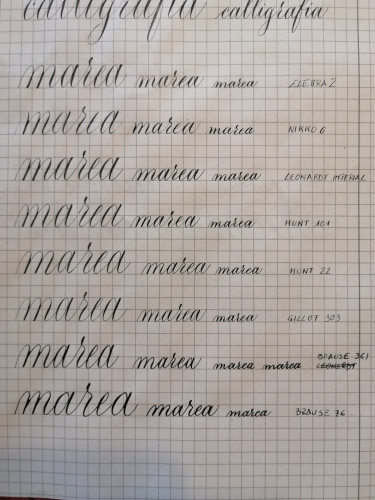 calligrafia calligrafia
marea marea marea ZEBRA 2
marea marea marea NIKKO G
marea marea marea LEONARDT IMPERIAL
marea marea marea HUNT 101
marea marea marea HUNT 22
marea marea marea GILLOT 303
marea marea marea marea BRAUSE 361
marea marea marea BRAUSE 76